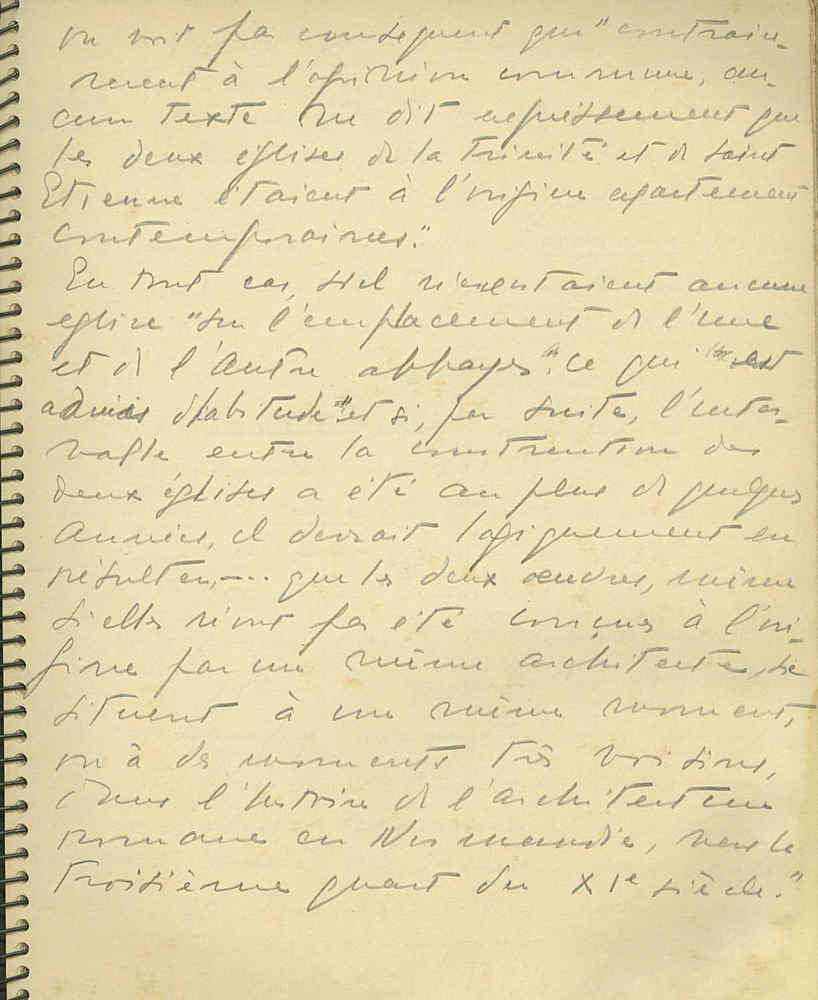 on voit par conséquent que "contraire-
ment à l'opinion commune, au-
cun texte ne dit expressément que
les deux églises de la Trinité et de Saint
Etienne étaient à l'origine exactement
contemporaines."
En tout cas, s'il n'existaient aucune
église "sur l'emplacement de l'une
et de l'autre abbayes", ce qui "est
admis d'habitude" et si, par suite, l'inter-
valle entre la construction des
deux églises a été au plus de quelques
années, il devrait logiquement en
résulter,... que les deux œuvres, même
si elles n'ont pas été conçues à l'ori-
gine par un même architecte, se
situent à un même moment,
ou à des moments très voisins,
dans l'histoire de l'architecture
romane en Normandie, vers le
troisième quart du XIe siècle."